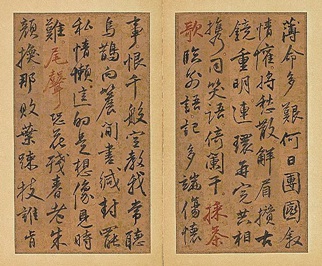 薄命多艱何日團圓敘
情懷將愁散解眉攢古
鏡重明連環再完共相
攜同笑語倚闌干採茶
歌臨別語記多端傷懷
事恨千般空教我常聽
烏鵲向簷間書緘封罷
私情懶言的是想像見時
難尾聲況花殘春老朱
顏換那敗葉踈枝誰肯